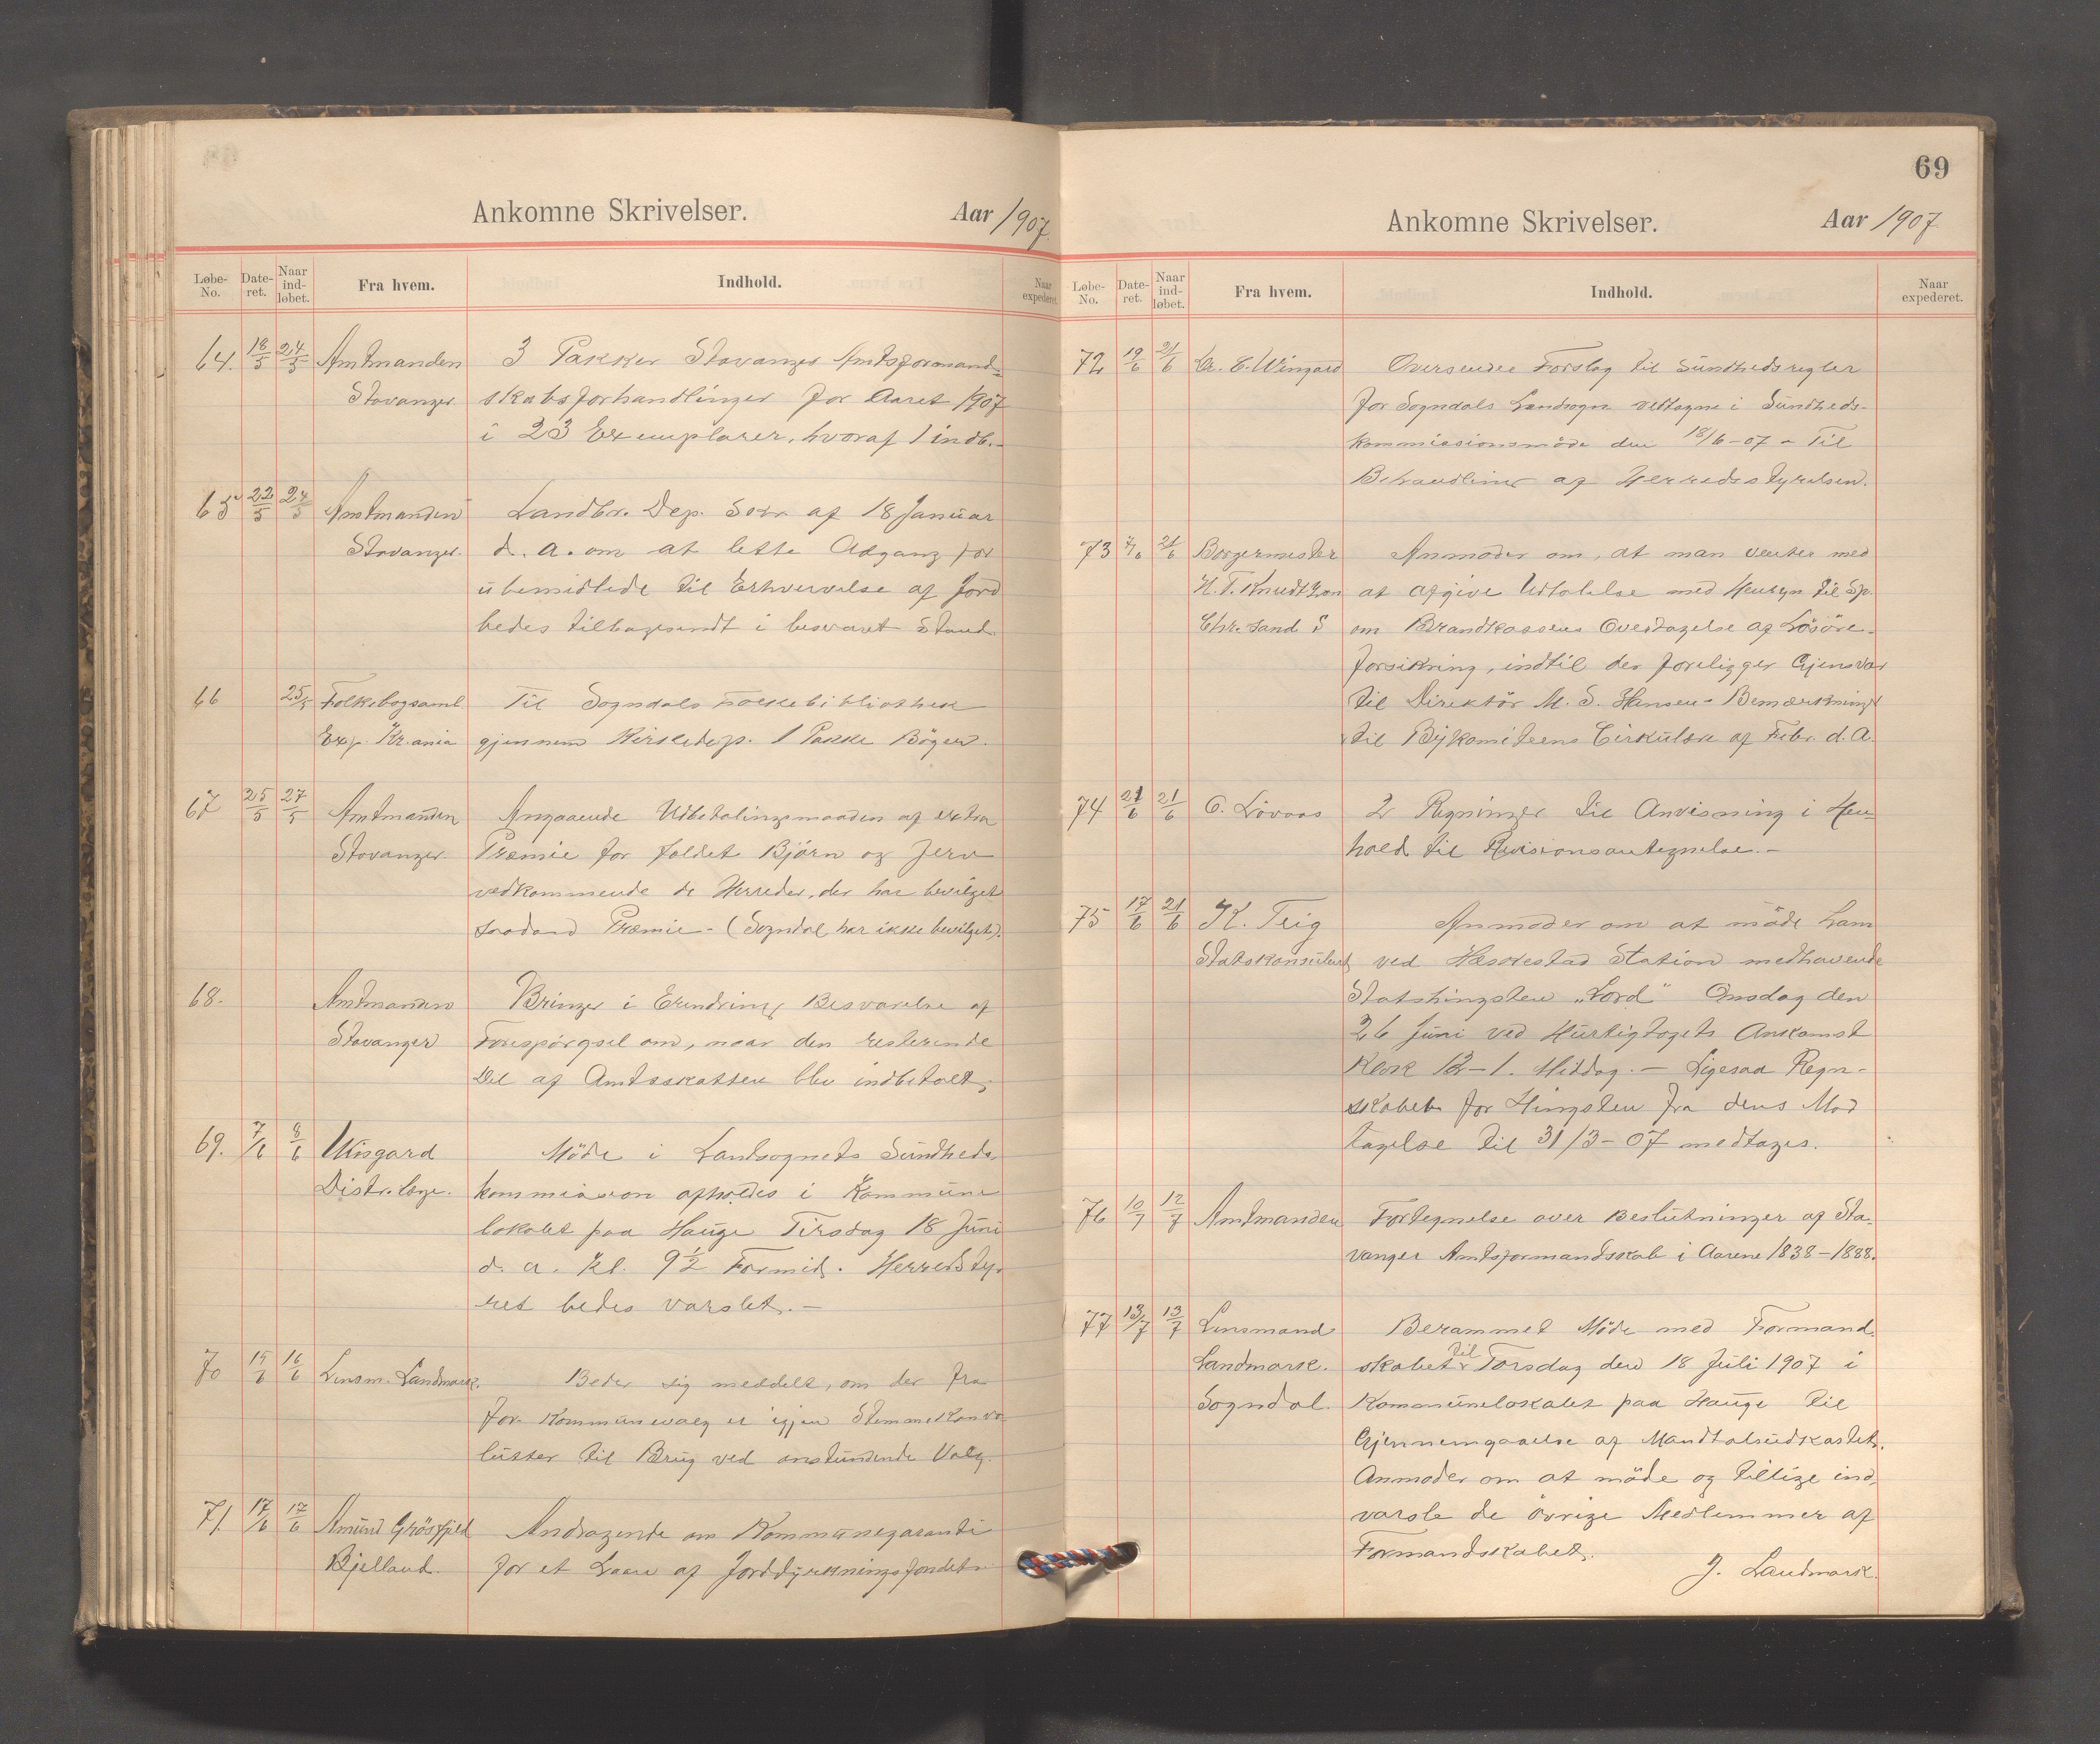 Ankomne Skrivelser. Aar 1907.
Løbe-No. Date-ret. Naar ind-løbet. Fra hvem. Indhold. Naar expederet
64. 18/5 24/5 Amtmanden 3 Pakker Stavanger Amtsformand-
Stavanger skabsforhandlinger for Aaret 1907
i 23 Exemplarer, hvoraf 1 indb.
65 22/5 24/5 Amtmanden Landbr. Dep. Skr. af 18 Januar
Stavanger. d. a. om at lette Adgang for
ubemidlede til Erhvervelse af Jord
bedes tilbagesendt i besvaret Stand.
66 25/5 Folkebogsaml. Til Sogndals Folkebibliothek
Exp. Kr.ania gjennem Kirkedep. 1 Pakke Böger.
67 25/5 27/5 Amtmanden Angaaende Udbetalingsmaaden af extra
Stavanger. Præmie for fældet Björn og Jerv
vedkommende de Herreder, der har bevilget
saadand Præmie - (Sogndal har ikke bevilget).
68. Amtmanden Bringer i Erindring Besvarelse af
Stavanger Forespörgsel om, naar den resterende
Del af Amtsskatten blev indbetalt.
69. 7/6 8/6 Wisgard Möde i Landsognets Sundheds-
Distr.læge. kommission afholdes i Kommune
lokalet paa Hauge Tirsdag 18 Juni
d. a. Kl. 9 1/2 Formid. Herredsty-
ret bedes varslet. -
70 15/6 16/6 Lensm. Landmark. Beder sig meddelt, om der fra
for. Kommunevalg er igjen Stemmekonvo-
lutter til Brug ved anstundende Valg.
71. 17/6 17/6 Amund Grösfjeld Andragende om Kommunegaranti
Bjelland. for et Laan af Jorddyrkningsfondet.
69
Ankomne Skrivelser. Aar 1907.
Løbe-No. Date-ret. Naar ind-løbet. Fra hvem. Indhold. Naar expederet.
72 19/6 21/6 Chr. E. Wingard Oversender Forslag til Sundhedsregler
for Sogndals Landsogn vedtagne i Sundheds-
kommissionsmöde den 18/6-07 - Til
Behandling af Herredsstyrelsen.
73 21/6 Borgermester Anmoder om, at man venter med
H. T. Knudtzon at afgive Udtalelse med Hensyn til Sp.
Chr.sand S om Brandkassens Overtagelse af Lösöre-
forsikring, indtil der foreligger Gjensvar
til Direktör M. S. Hansen - Bemærkninger
til Bykomiteens Cirkulære af Febr. d. A.
74 21/6 21/6 O. Lövaas 2 Regninger til Anvisning i Hen-
hold til Revisionsantegnelse. -
75 17/6 21/6 K. Teig Anmoder om at möde ham
Statskonsulent ved Hæskestad Station medhavende
Statshingsten "Lord" Onsdag den
26 Juni ved Hurtigtogets Ankomst
Klok 12-1. Middag. - Ligesaa Regn-
skabet for Hingsten fra dens Mod
tagelse til 31/3-07 medtages.
76 10/7 12/7 Amtmanden Fortegnelse over Beslutninger af Sta-
vanger Amtsformandskab i Aarene 1838-1888.
77 13/7 13/7 Lensmand Berammet Möde med Formand-
Landmark. skabet til Torsdag den 18 Juli 1907 i
Sogndal. Kommunelokalet paa Hauge til
Gjennemgaaelse af Mandtalsudkastet.
Anmoder om at möde og tillige ind-
varsle de övrige Medlemmer af
Formandskabet.
J. Landmark.